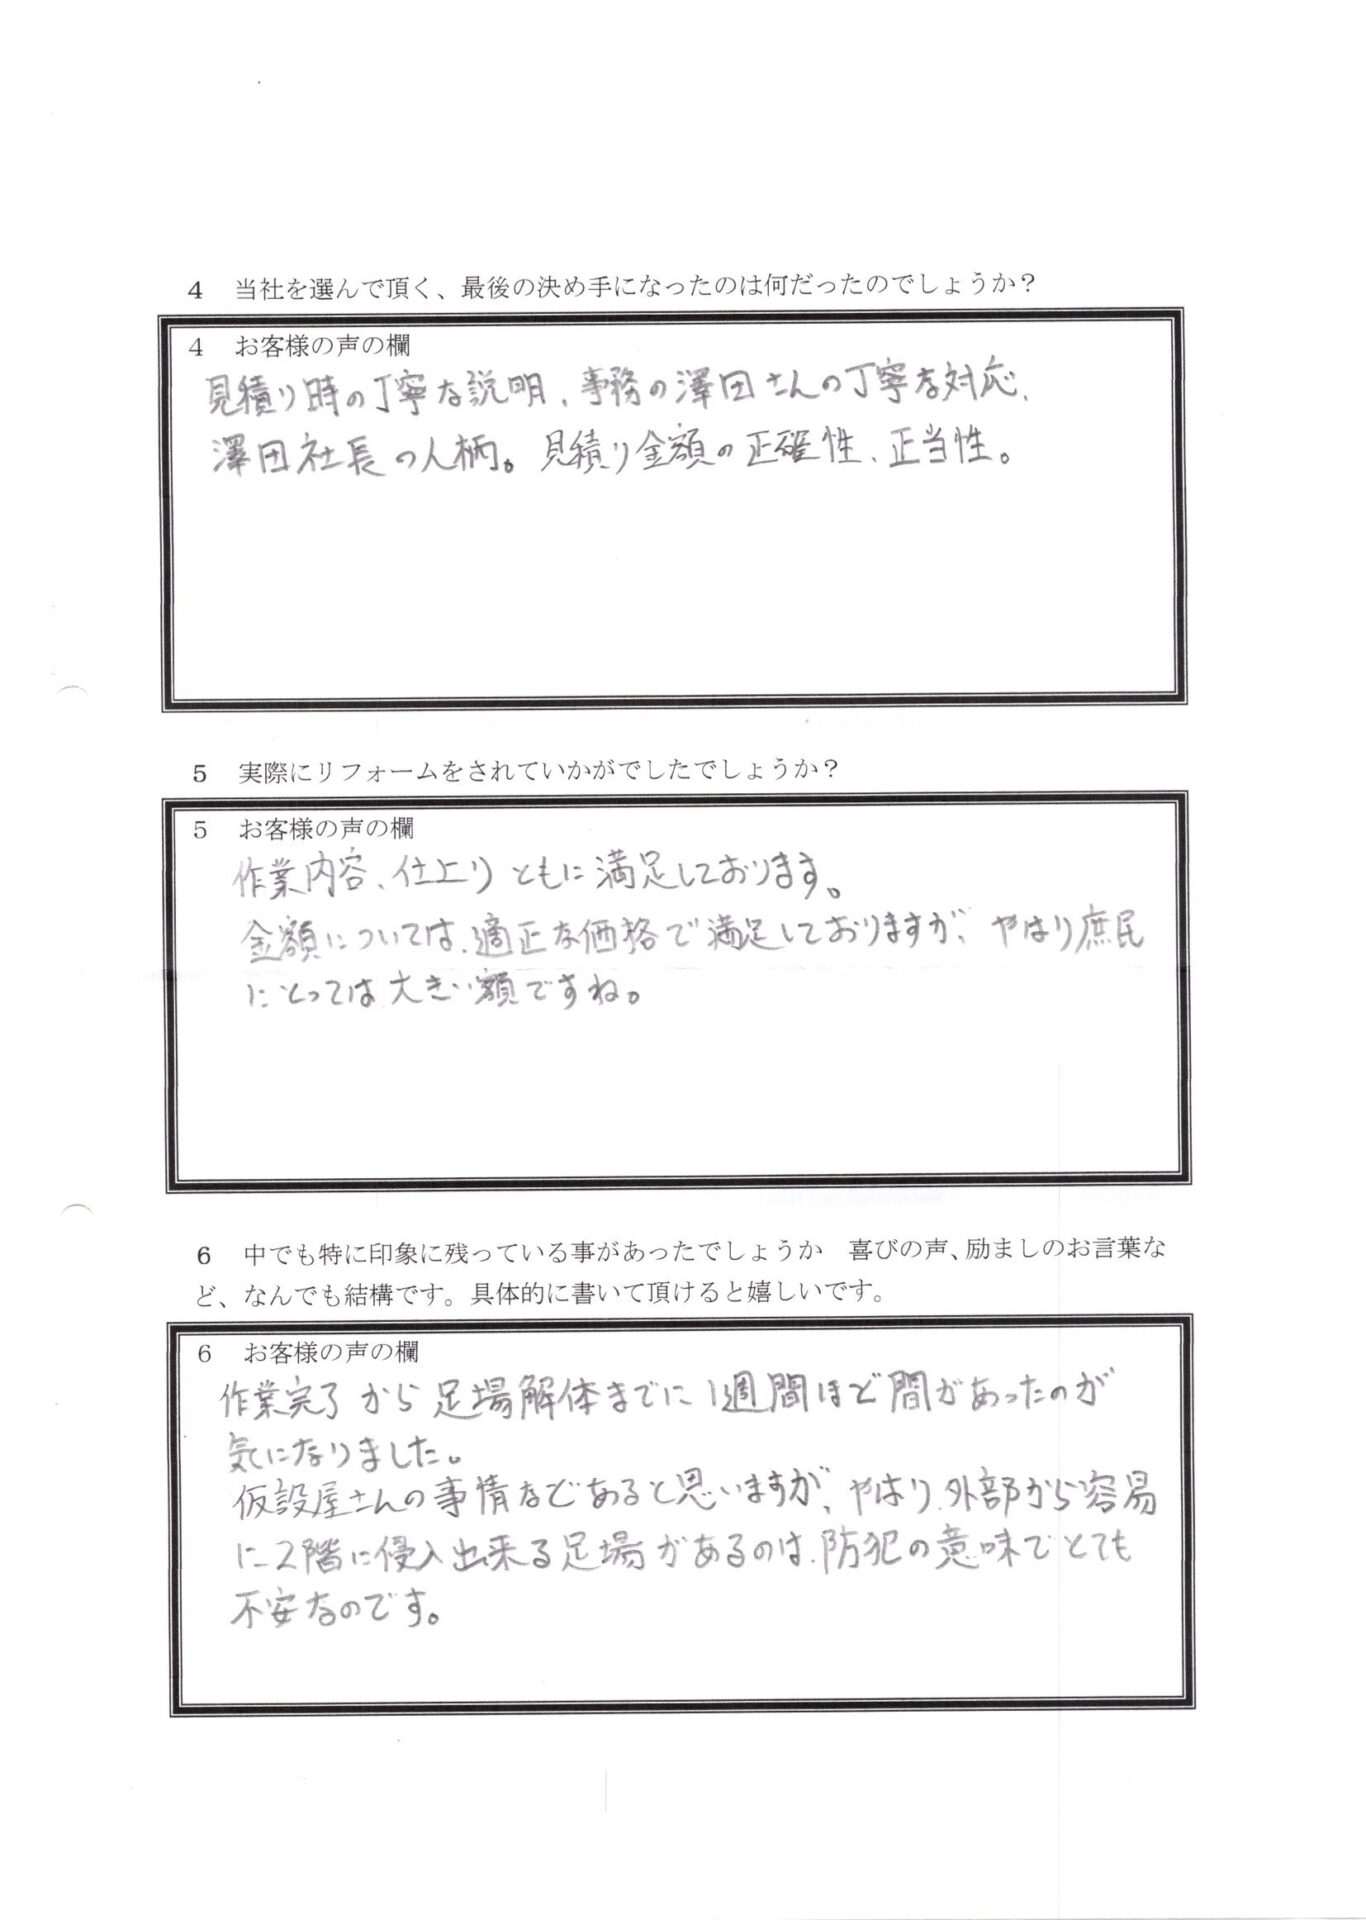 4 当社を選んで頂く、最後の決め手になったのは何だったのでしょうか？
4 お客様の声の欄
見積り時の丁寧な説明、事務の澤田さんの丁寧な対応、
澤田社長の人柄。見積り金額の正確性、正当性。
5 実際にリフォームをされていかがでしたでしょうか？
5 お客様の声の欄
作業内容、仕上りともに満足しております。
金額については、適正な価格で満足しておりますが、やはり庶民
にとっては大きい額ですね。
6 中でも特に印象に残っている事があったでしょうか 喜びの声、励ましのお言葉な
ど、なんでも結構です。具体的に書いて頂けると嬉しいです。
6 お客様の声の欄
作業完了から足場解体までに1週間ほど間があったのが
気になりました。
仮設屋さんの事情などあると思いますが、やはり、外部から容易
に2階に侵入出来る足場があるのは、防犯の意味でとても
不安なのです。